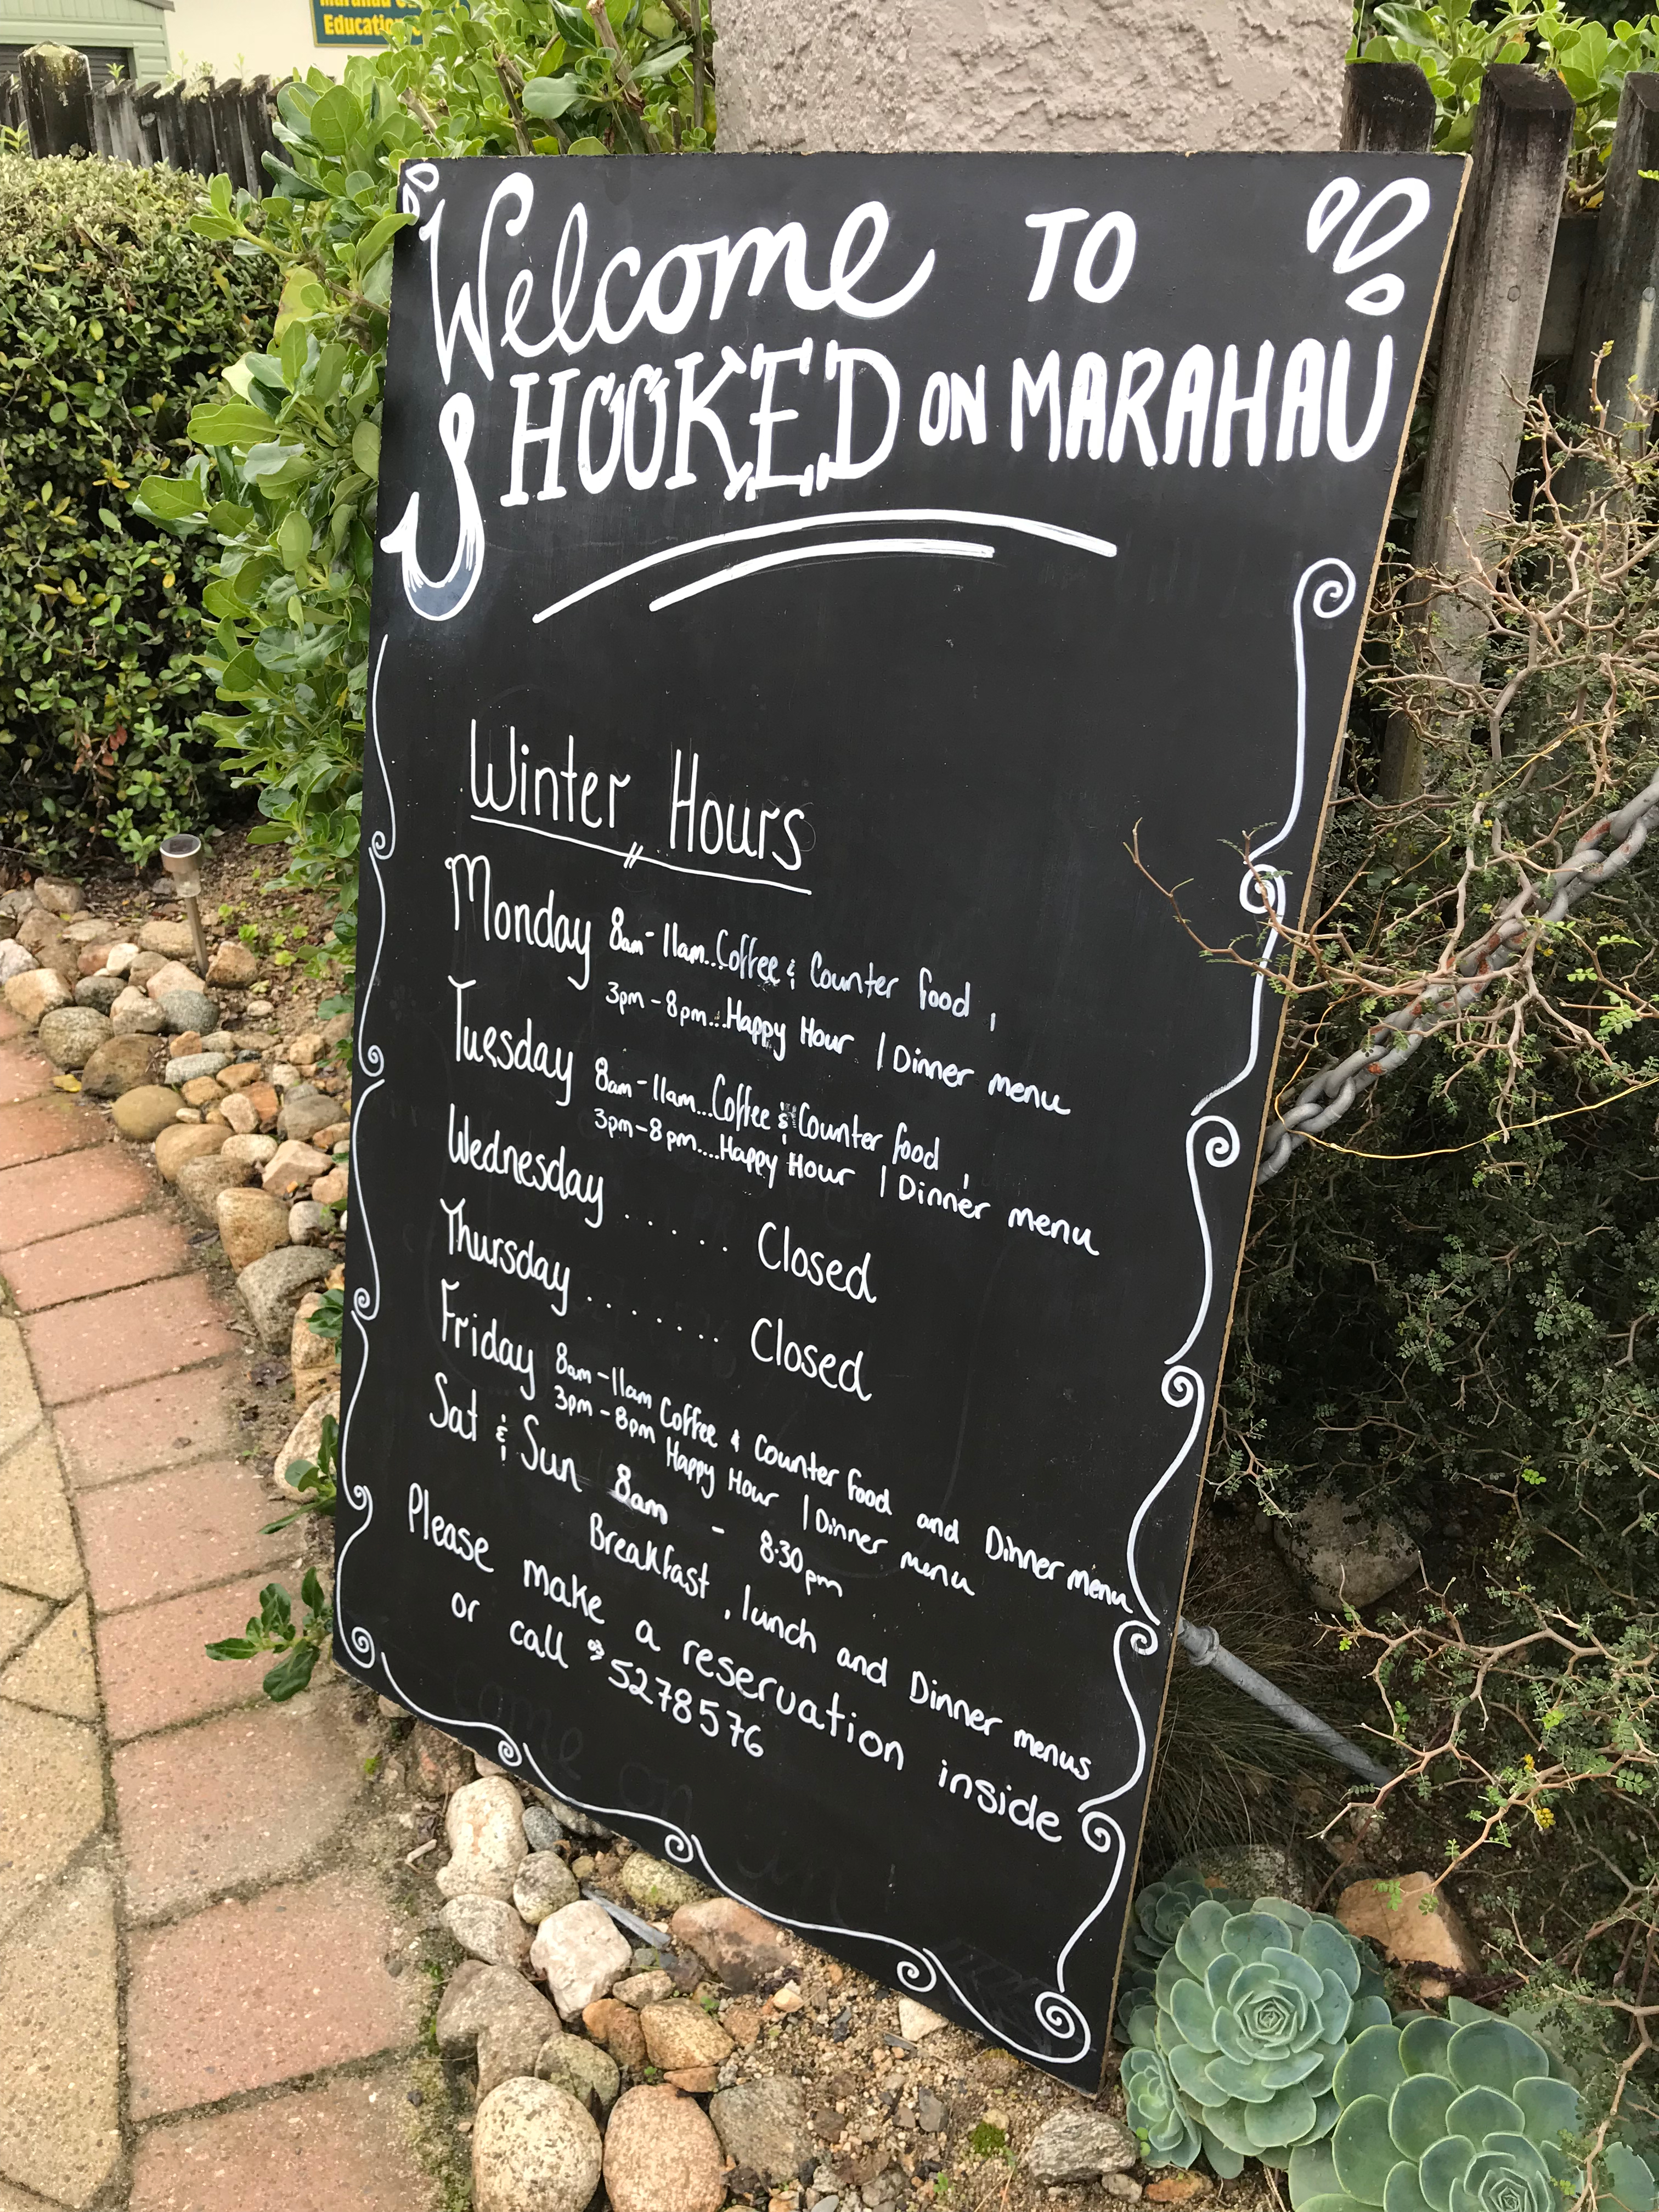 Education
Welcome TO
HOOKED ON MARAHAU
Winter Hours
Monday 8am - 11am...Coffee & Counter food,
3pm - 8pm...Happy Hour | Dinner menu
Tuesday 8am - 11am...Coffee & Counter food,
3pm - 8pm....Happy Hour | Dinner menu
Wednesday ...... Closed
Thursday ....... Closed
Friday 8am - 11am Coffee & Counter food and Dinner menu
3pm - 8pm Happy Hour | Dinner menu
Sat & Sun 8am - 8.30pm
Breakfast, lunch and Dinner menus
Please make a reservation inside
or call 03 5278576